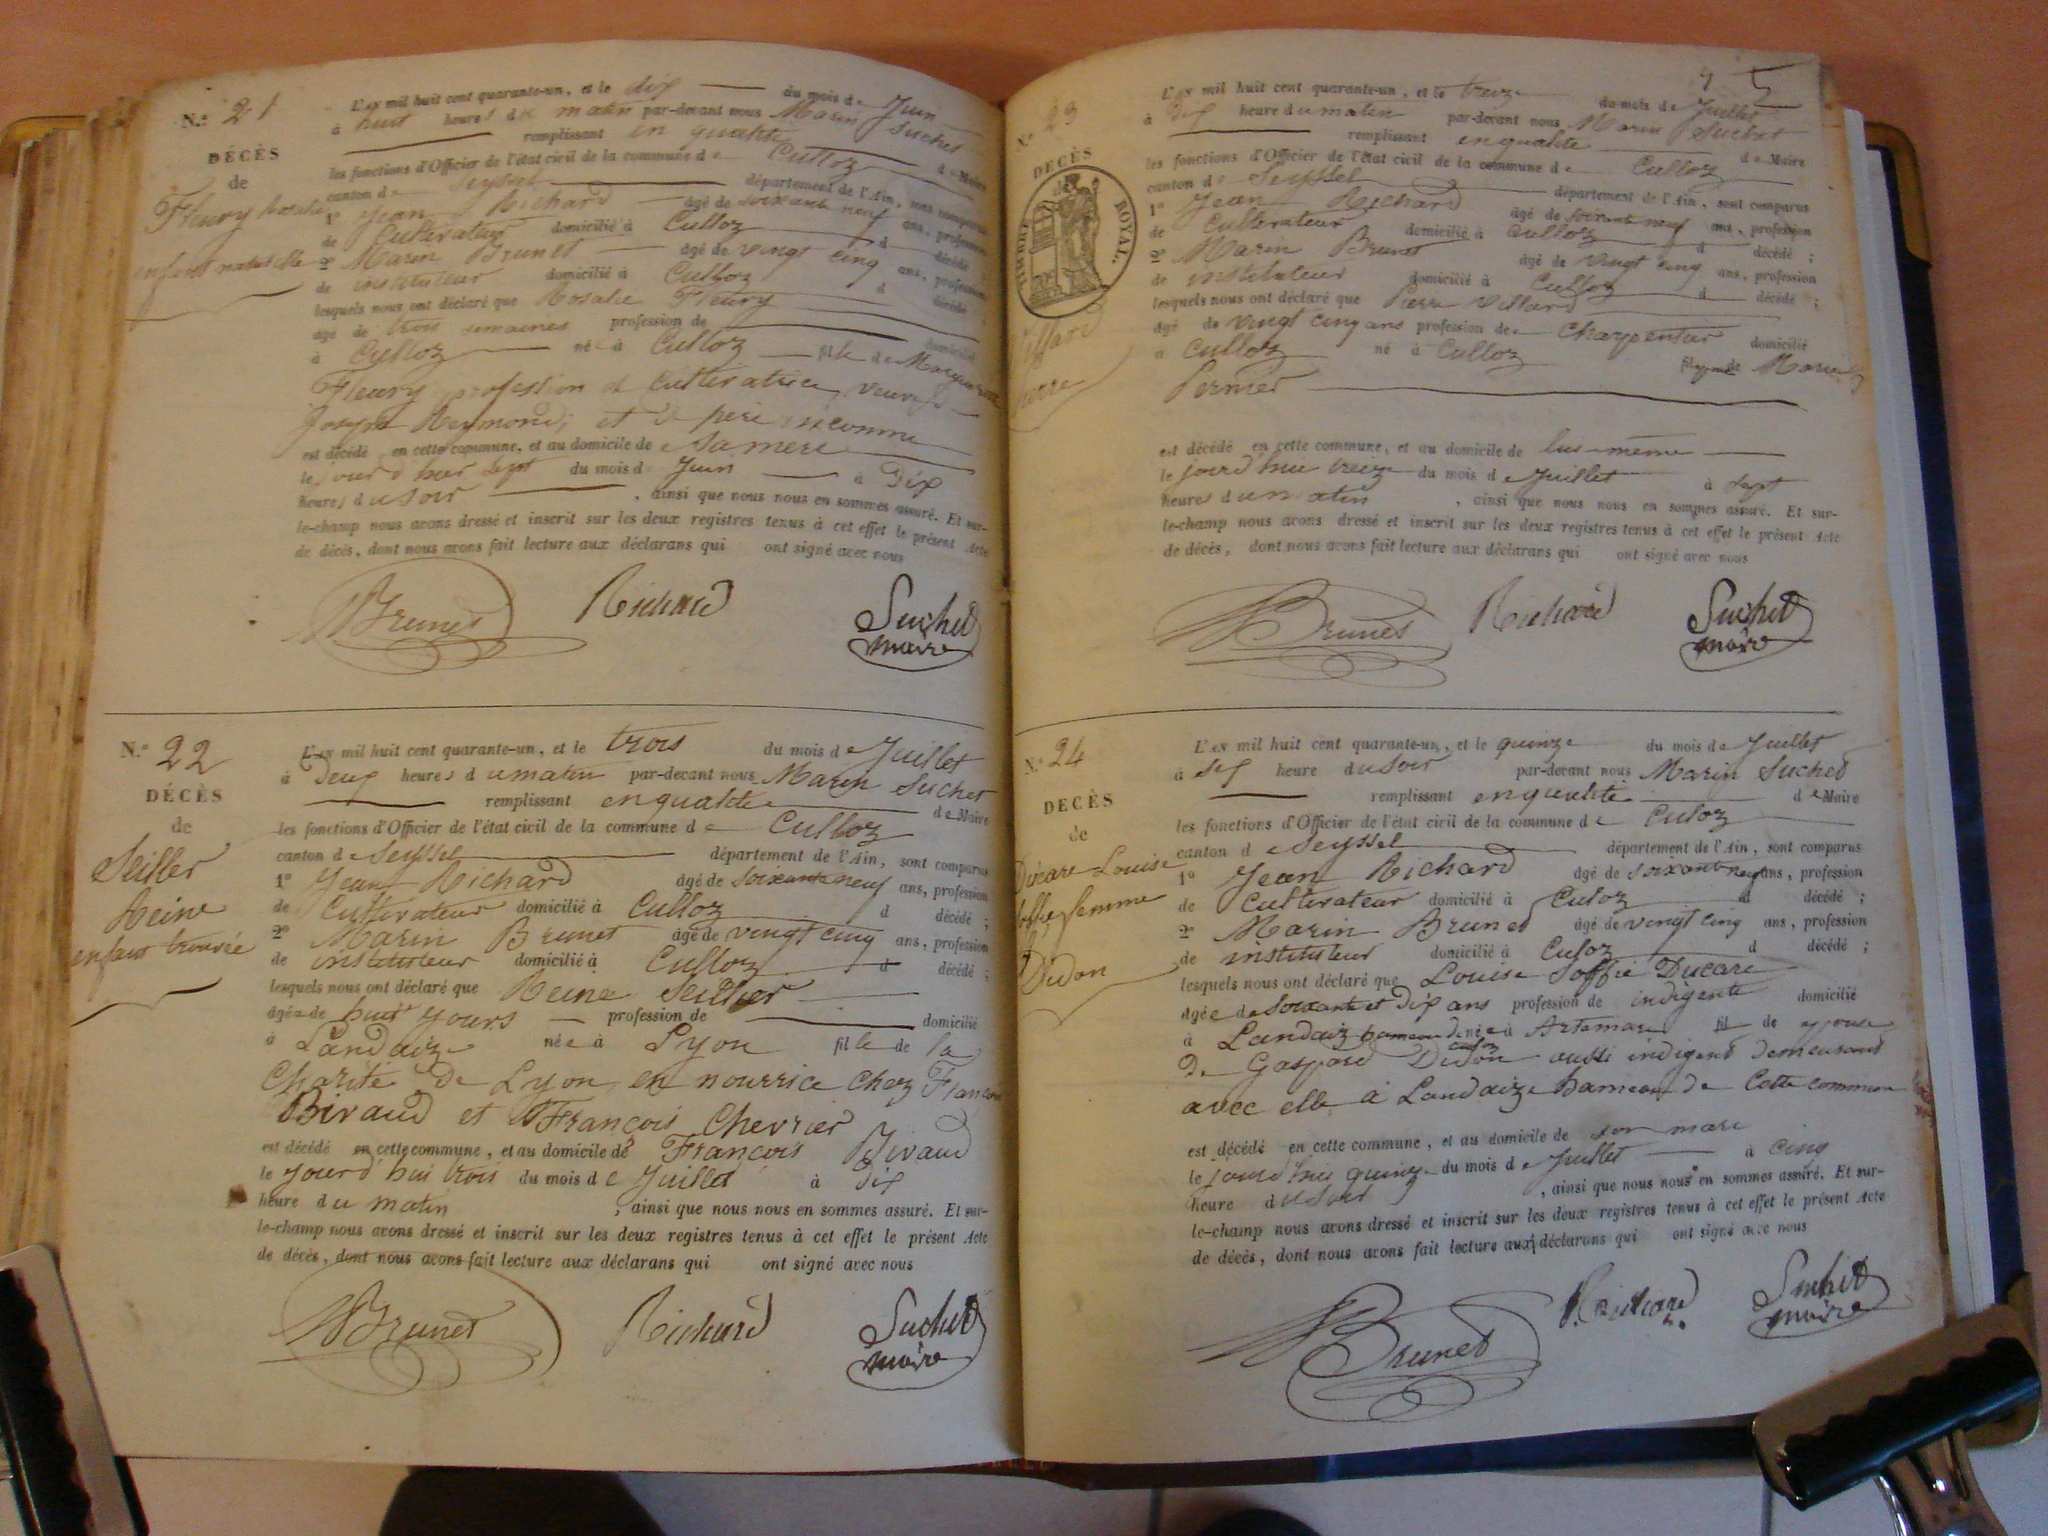 N.° 21
DÉCÈS
de
Fleury Rosalie
enfant naturelle
L'AN mil huit cent quarante-un, et le dix du mois de Juin
à huit heures du matin par-devant nous Marin Suchet
remplissant en qualité de Maire
les fonctions d'Officier de l'état civil de la commune de Culloz
canton de Seyssel département de l'Ain, sont comparus
1° Jean Richard âgé de soixante neuf ans, profession
de Cultivateur domicilié à Culloz d décédé ;
2° Marin Brunet âgé de vingt cinq ans, profession
de instituteur domicilié à Culloz d décédé
lesquels nous ont déclaré que Rosalie Fleury
âgé de trois semaines profession de domicilié
à Culloz né à Culloz fille de
Fleury profession de Cultivatrice, veuve de
Joseph Reymond, et de père inconnu
est décédé en cette commune, et au domicile de sa mere
le jourd'hier sept du mois de Juin à Dix
heures du soir , ainsi que nous nous en sommes assuré. Et sur-
le-champ nous avons dressé et inscrit sur les deux registres tenus à cet effet le présent Acte
de décès, dont nous avons fait lecture aux déclarans qui ont signé avec nous
Brunet Richard Suchet
maire
N.° 22
DÉCÈS
de
Seiller
Reine
enfant trouvée
L'AN mil huit cent quarante-un, et le trois du mois de Juillet
à Deux heures du matin par-devant nous Marin Suchet
remplissant en qualité de Maire
les fonctions d'Officier de l'état civil de la commune de Culloz
canton de Seyssel département de l'Ain, sont comparus
1° Jean Richard âgé de soixante neuf ans, profession
de Cultivateur domicilié à Culloz d décédé ;
2° Marin Brunet âgé de vingt cinq ans, profession
de instituteur domicilié à Culloz d décédé ;
lesquels nous ont déclaré que Reine Seiller
âgée de huit jours profession de domicilié
à Landaize née à Lyon fille de la
Charité de Lyon, en nourrice chez
Bivaud et François Chevrier
est décédé en cette commune, et au domicile de François Bivaud
le jourd'hui trois du mois de Juillet à Dix
heure du matin , ainsi que nous nous en sommes assuré. Et sur-
le-champ nous avons dressé et inscrit sur les deux registres tenus à cet effet le présent Acte
de décès, dont nous avons fait lecture aux déclarans qui ont signé avec nous
Brunet Richard Suchet
maire
5
N.° 23
DÉCÈS
de
TIMBRE ROYAL
Villard
Pierre
L'AN mil huit cent quarante-un, et le treize du mois de Juillet
à Dix heure du matin par-devant nous Marin Suchet
remplissant en qualité de Maire
les fonctions d'Officier de l'état civil de la commune de Culloz
canton de Seyssel département de l'Ain, sont comparus
1° Jean Richard âgé de soixante neuf ans, profession
de Cultivateur domicilié à Culloz d décédé ;
2° Marin Brunet âgé de vingt cinq ans, profession
de instituteur domicilié à Culloz d décédé ;
lesquels nous ont déclaré que Pierre Villard
âgé de vingt cinq ans profession de Charpentier domicilié
à Culloz né à Culloz
Pernier
est décédé en cette commune, et au domicile de lui-même
le jourd'hui treize du mois de Juillet à sept
heures du matin , ainsi que nous nous en sommes assuré. Et sur-
le-champ nous avons dressé et inscrit sur les deux registres tenus à cet effet le présent Acte
de décès, dont nous avons fait lecture aux déclarans qui ont signé avec nous
Brunet Richard Suchet
maire
N.° 24
DÉCÈS
de
Ducare Louise
Soffie femme
Didon
L'AN mil huit cent quarante-un, et le quinze du mois de Juillet
à six heure du soir par-devant nous Marin Suchet
remplissant en qualité de Maire
les fonctions d'Officier de l'état civil de la commune de Culoz
canton de Seyssel département de l'Ain, sont comparus
1° Jean Richard âgé de soixante neuf ans, profession
de Cultivateur domicilié à Culoz d décédé ;
2° Marin Brunet âgé de vingt cinq ans, profession
de instituteur domicilié à Culoz d décédé ;
lesquels nous ont déclaré que Louise Soffie Ducare
âgée de soixante et dix ans profession de indigente domicilié
à Landaiz hameau de née à Artemare fil de épouse
culoz
De Gaspard Didon aussi indigent demeurant
avec elle à Landaize hameau de Cette commune
est décédé en cette commune, et au domicile de son mari
le jourd'hui quinze du mois de Juillet à cinq
heure du soir , ainsi que nous nous en sommes assuré. Et sur-
le-champ nous avons dressé et inscrit sur les deux registres tenus à cet effet le présent Acte
de décès, dont nous avons fait lecture aux déclarans qui ont signé avec nous
Brunet Richard Suchet
maire